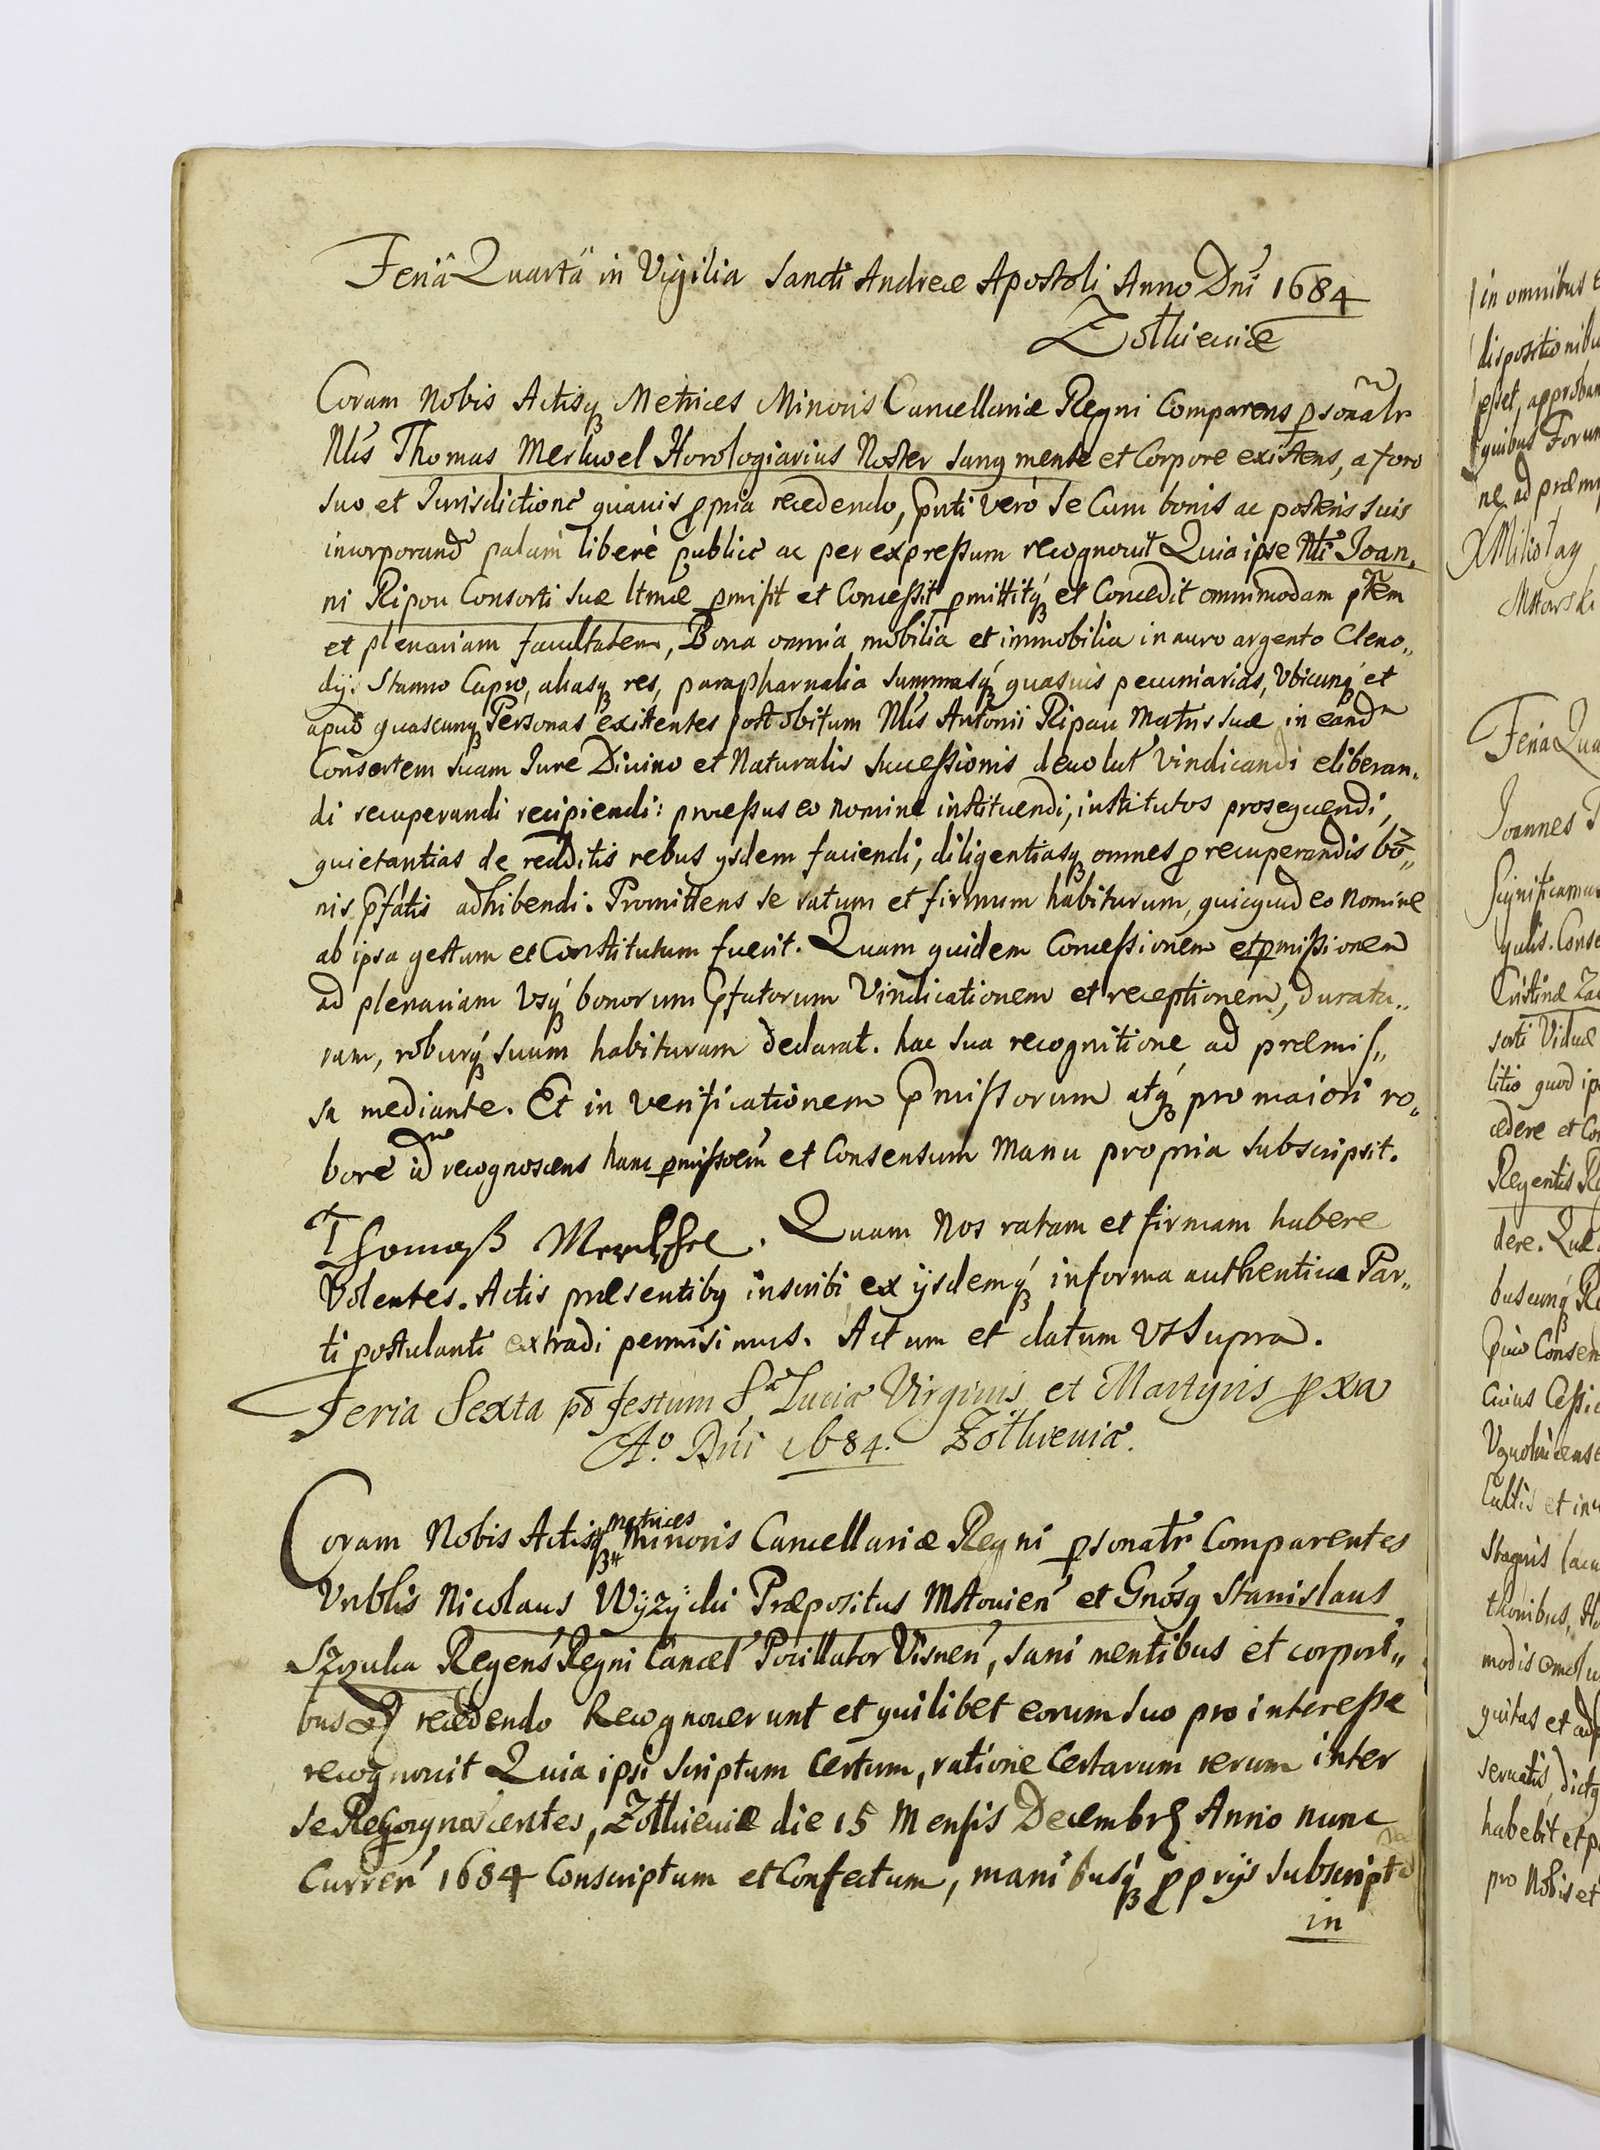 Feriâ Quartâ in Vigilia Sancti Andreæ Apostoli Anno Dni 1684
Zołkieviæ
Coram Nobis Actisq Metrices Minoris Cancellariæ Regni Comparens psonalr
Nlis Thomas Merkwel Horologiarius Noster sanq mente et Corpore existens, a foro
suo et Jurisdictione quavis ppria recedendo, pnti verò se Cum bonis ac posteris suis
incorporand palam liberè publicè ac per expressum recognovit Quia ipse Nli Joan,,
ni Ripou Consorti suæ ltmæ pmisit et Concessit pmittitq et Concedit omnimodam ptem
et plenariam facultatem, Bona omnia mobilia et immobilia in auro argento Cleno,,
dijs Stanno Cupro, aliasq res, parapharnalia summasq quasuis pecuniarias, Vbicunq et
apud quascunq Personas existentes post obitum Nlis Antonii Ripau Matris suæ in eand
Consortem suam Jure Divino et Naturalis Successionis devolut Vindicandi eliberan,,
di recuperandi recipiendi: processus eo nomine instituendi, institutos prosequendi,
quietantias de redditis rebus ysdem faciendi, diligentiasq omnes p recuperandis bo,,
nis pfatis adhibendi. Promittens se ratum et firmum habiturum, quicquid eo nomine
ab ipsa gestum et Constitutum fuerit. Quam quidem Concessionem et pmissionem
ad plenariam Vsq bonorum pfatorum Vindicationem et receptionem, duratu,,
ram, roburq suum habituram declarat. hac sua recognitione ad præmis,,
sa mediante. Et in verificationem pmissorum atq pro maiori ro,,
bore id recognoscens hanc pmissoem et Consensum Manu propria subscripsit.
Thomaß . Quam Nos ratam et firmam habere
Volentes. Actis præsentibq inscribi ex ijsdemq in forma authentica Par,,
ti postulanti extradi permisimus. Actum et datum Vt Supra.
Feria Sexta pd festum S Luciæ Virginis et Martyris pxa
Ao. Dni 1684. Zołkieviæ.
Coram Nobis Actisq metrices Minoris Cancellariæ Regni psonalr Comparentes
Vnblis Nicolaus Wyżycki Præpositus Mstouien et Gnosq Stanislaus
Szczuka Regens Regni Cancel Pocillator Visnen, sani mentibus et corpori,,
bus recedendo Recognoverunt et quilibet eorum suo pro interesse
recognovit Quia ipsi scriptum Certum, ratione Certarum rerum inter
se Recognoscentes, Zołkieviæ die 15 Mensis Decembr Anno nunc
Curren 1684 Conscriptum et Confectum, manibusq pprijs subscript
in
in omnibus
dispositionibu
esset, approban
quibus Forum
ne ad præm
X Mikołay
Mstowski
Feria Qua
Joannes T
Significamus
gulis. Conse
Cristinæ Za
sorti Viduæ
litio quod ip
cedere et Co
Regentis Re
dere. Quæ
buscunq Re
Consen
Cuius Cessi
Cultis et inc
Stagnis lacu
modis emolu
quitas et
servatis, dict
habebit et p
pro Nobis et